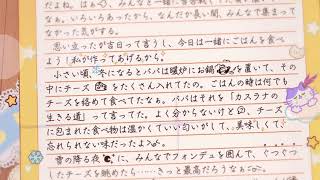 だよね。はぁ〜、みんなと一緒に
なぁ。いろいろあったから、なんだか長い間、みんなで集まって
なかった気がする。
思い立ったが吉日って言うし、今日は一緒にごはんを食べ
よう！私が作ってあげるから。
小さい頃、冬になるとパパは暖炉にお鍋を置いて、その
中にチーズをたくさん入れてたの。ごはんの時は何でも
チーズを絡めて食べてたなぁ。パパはそれを「カスラナの
生きる道」って言ってた。よく分からないけど、チーズ
に包まれた食べ物は温かくていい匂いで、美味しくて
忘れられない味だったよ♪
雪の降る夜に、みんなでフォンデュを囲んで、ぐつぐつ
したチーズを眺めたら……きっと最高だろうなぁ